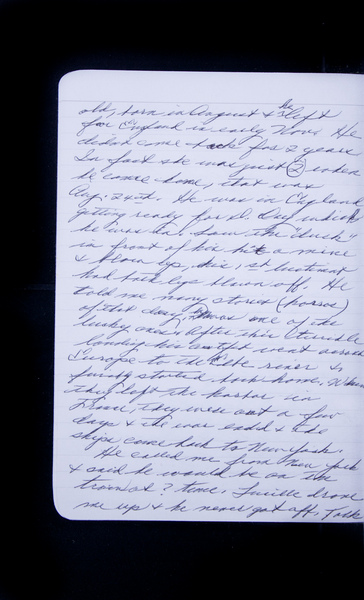 old, born in August & he left
for England in early Nov. He
didn't come back for 2 years
In fact she was just 2 when
he came home, that was
Aug. 22nd. He was in England
getting ready for D. Day, which
he was in. Saw the "duck"
in front of his hit a mine
& blown up, his 1st lieutenant
had both legs blown off. He
told me many stores (horror)
of that day, He was one of the
lucky ones. After this terrible
landing his outfit went across
Europe to the Elbe river &
finally started back home. When
they left the harbor in
France, they were out a few
days & it was ended & the
ships came back to New York.
He called me from New York
& said he would be on the
train at ? time. Lucille drove
me up & he never got off. Talk